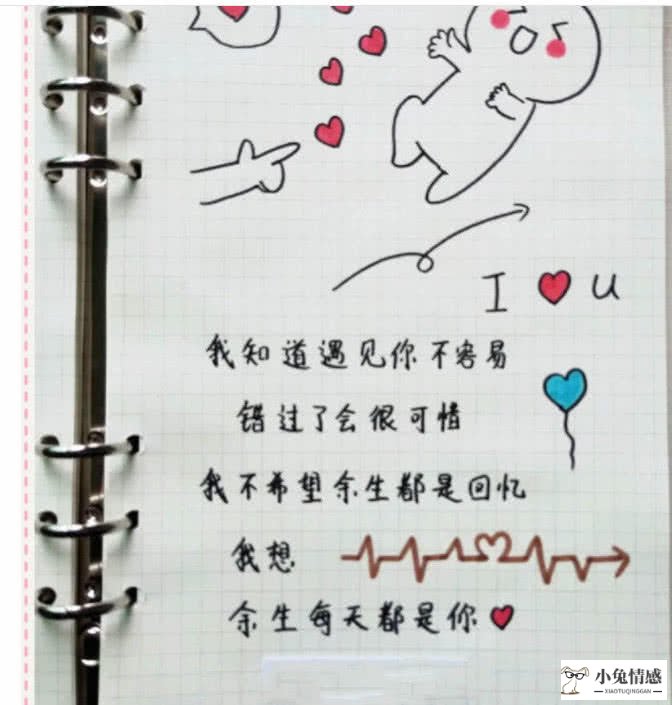 I ❤ U
我知道遇见你不容易
错过了会很可惜
我不希望余生都是回忆
我想
余生每天都是你❤
小兔情感
XIAOTUQINGGAN